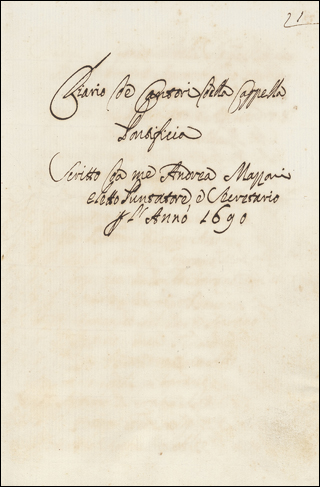 21
Diario de Cantori della Cappella
Pontificia
Scritto da me Andrea
eletto Puntatore, e Secretario
p l'Anno 1690